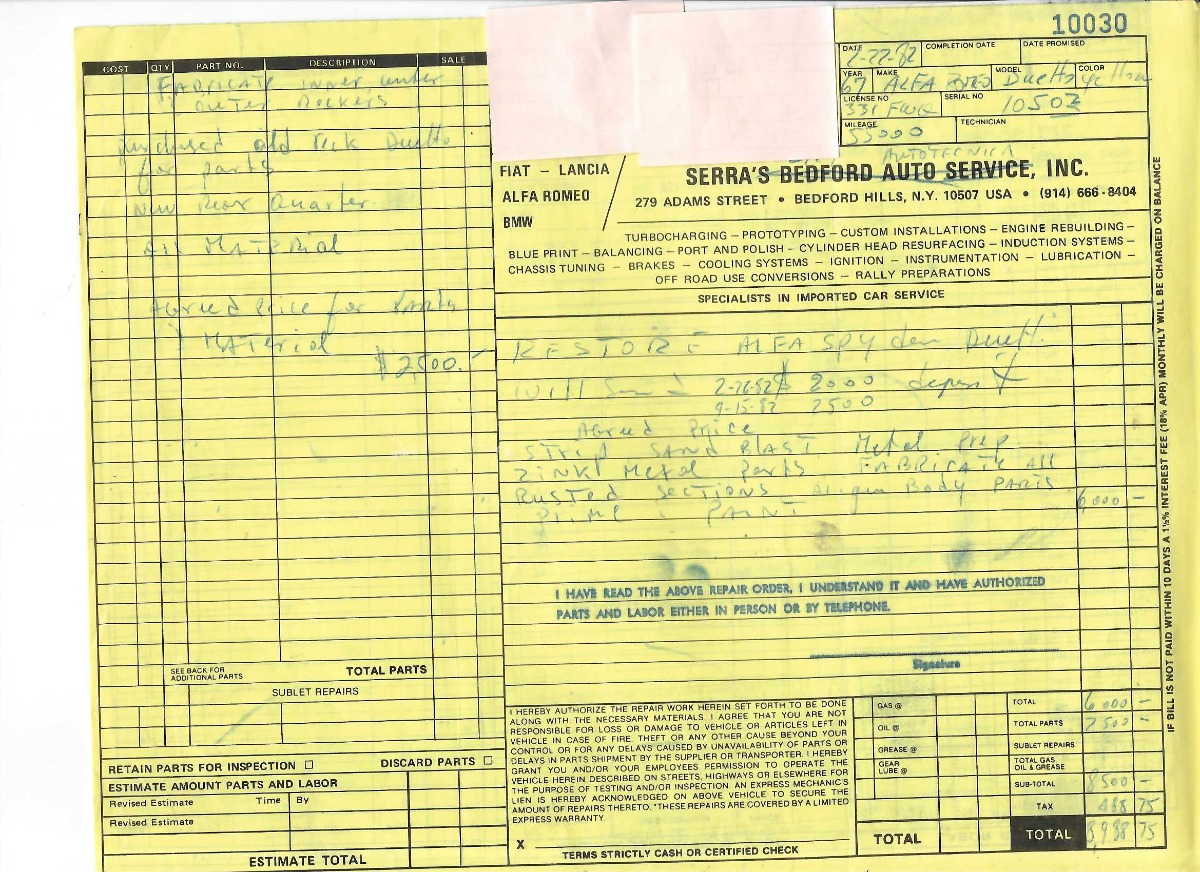 10030
DATE 2-22-82 COMPLETION DATE DATE PROMISED
YEAR 67 MAKE ALFA MODEL Duetto COLOR
LICENSE NO 331 FWQ SERIAL NO 10503
MILEAGE 53000 TECHNICIAN
AUTOTECNICA
FIAT – LANCIA
ALFA ROMEO
BMW
SERRA'S BEDFORD AUTO SERVICE, INC.
279 ADAMS STREET • BEDFORD HILLS, N.Y. 10507 USA • (914) 666-8404
TURBOCHARGING – PROTOTYPING – CUSTOM INSTALLATIONS – ENGINE REBUILDING –
BLUE PRINT – BALANCING – PORT AND POLISH – CYLINDER HEAD RESURFACING – INDUCTION SYSTEMS –
CHASSIS TUNING – BRAKES – COOLING SYSTEMS – IGNITION – INSTRUMENTATION – LUBRICATION –
OFF ROAD USE CONVERSIONS – RALLY PREPARATIONS
SPECIALISTS IN IMPORTED CAR SERVICE
COST QTY PART NO. DESCRIPTION SALE
FABRICATE inner, outer
outer Rockers
purchased old Duetto
for parts
New Rear Quarter.
All MATERIAL
Agreed price for Parts
MATERIAL
$2,500.-
SEE BACK FOR ADDITIONAL PARTS TOTAL PARTS
SUBLET REPAIRS
RETAIN PARTS FOR INSPECTION DISCARD PARTS
ESTIMATE AMOUNT PARTS AND LABOR
Revised Estimate Time By
Revised Estimate
ESTIMATE TOTAL
RESTORE ALFA SPYder Duett
Will Send 2-22-82 $ 2000 deposit
9-15-82 2500
Agreed Price
STRIP SAND BLAST Metal Prep
ZINK Metal Parts FABRICATE All
Rusted Sections Align Body PARTS
PRIME & PAINT 6,000 –
I HAVE READ THE ABOVE REPAIR ORDER, I UNDERSTAND IT AND HAVE AUTHORIZED
PARTS AND LABOR EITHER IN PERSON OR BY TELEPHONE.
Signature
I HEREBY AUTHORIZE THE REPAIR WORK HEREIN SET FORTH TO BE DONE
ALONG WITH THE NECESSARY MATERIALS. I AGREE THAT YOU ARE NOT
RESPONSIBLE FOR LOSS OR DAMAGE TO VEHICLE OR ARTICLES LEFT IN
VEHICLE IN CASE OF FIRE, THEFT OR ANY OTHER CAUSE BEYOND YOUR
CONTROL OR FOR ANY DELAYS CAUSED BY UNAVAILABILITY OF PARTS OR
DELAYS IN PARTS SHIPMENT BY THE SUPPLIER OR TRANSPORTER. I HEREBY
GRANT YOU AND/OR YOUR EMPLOYEES PERMISSION TO OPERATE THE
VEHICLE HEREIN DESCRIBED ON STREETS, HIGHWAYS OR ELSEWHERE FOR
THE PURPOSE OF TESTING AND/OR INSPECTION. AN EXPRESS MECHANIC'S
LIEN IS HEREBY ACKNOWLEDGED ON ABOVE VEHICLE TO SECURE THE
AMOUNT OF REPAIRS THERETO. "THESE REPAIRS ARE COVERED BY A LIMITED
EXPRESS WARRANTY
X
TERMS STRICTLY CASH OR CERTIFIED CHECK
GAS @
OIL @
GREASE @
GEAR LUBE @
TOTAL
TOTAL 6000 –
TOTAL PARTS 2500 –
SUBLET REPAIRS
TOTAL GAS, OIL & GREASE
SUB-TOTAL 8500 –
TAX 488 75
TOTAL 8,988 75
IF BILL IS NOT PAID WITHIN 10 DAYS A 1½% INTEREST FEE (18% APR) MONTHLY WILL BE CHARGED ON BALANCE